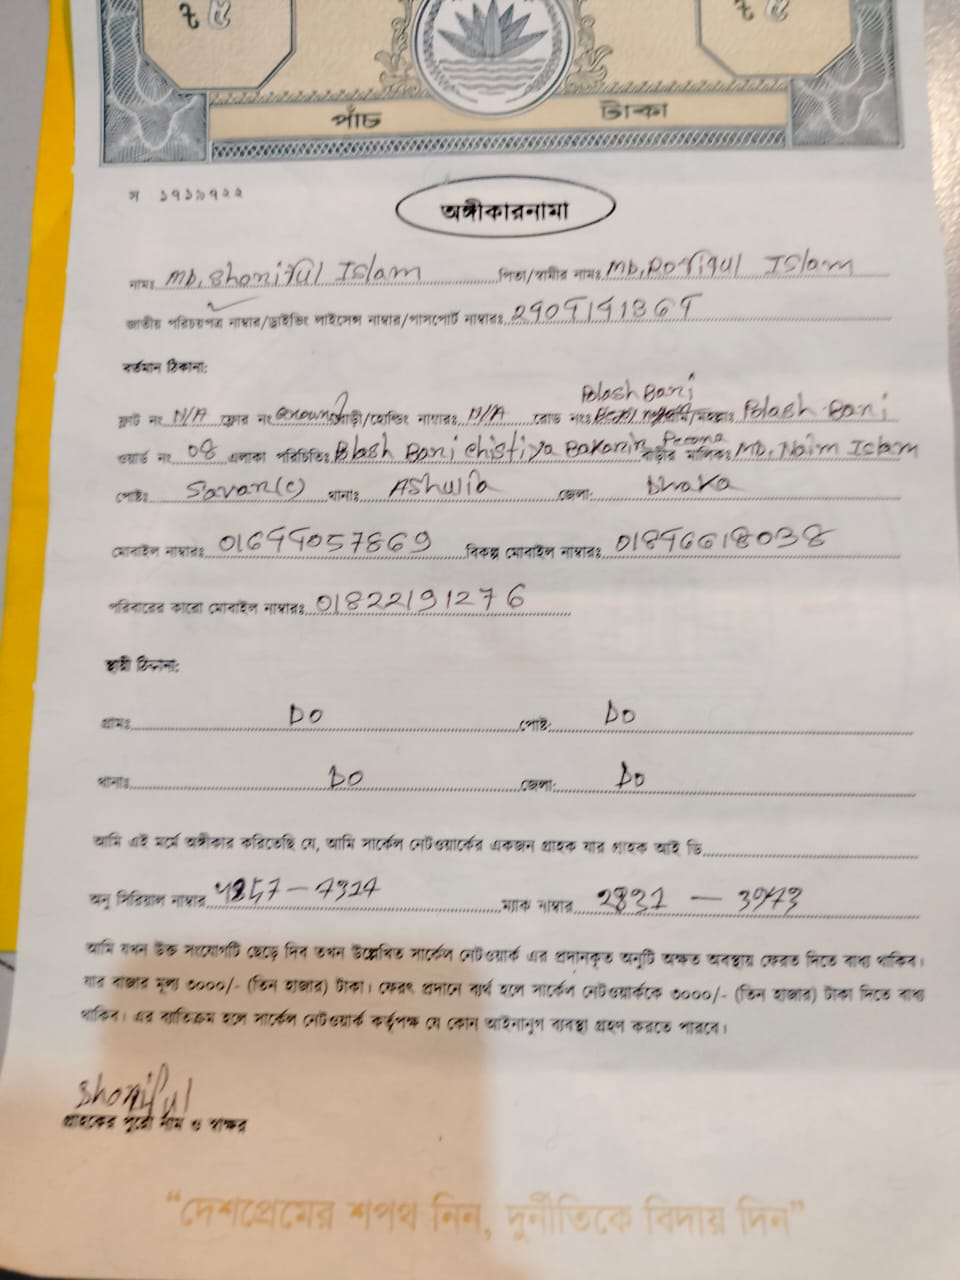 ৳ ৫ ৳ ৫
পাঁচ টাকা
গ ১৭১৯৭২২
অঙ্গীকারনামা
নামঃ MD, Shoniful Islam পিতা/স্বামীর নামঃ MD, Rofiqul Islam
জাতীয় পরিচয়পত্র নাম্বার/ড্রাইভিং লাইসেন্স নাম্বার/পাসপোর্ট নাম্বারঃ
বর্তমান ঠিকানা:
Polash Bari
ফ্লাট নং N/A ফ্লোর নং বাড়ী/হোল্ডিং নাম্বারঃ N/A রোড নংঃ Polash Bari
ওয়ার্ড নং 08 এলাকা পরিচিতিঃ Blash Bari Chistiya বাড়ীর মালিকঃ MD, Naim Islam
পোষ্টঃ Savar(c) থানাঃ Ashulia জেলা: Dhaka
মোবাইল নাম্বারঃ বিকল্প মোবাইল নাম্বারঃ
পরিবারের কারো মোবাইল নাম্বারঃ 01822191276
স্থায়ী ঠিকানা:
গ্রামঃ DO পোষ্ট: DO
থানাঃ DO জেলা: DO
আমি এই মর্মে অঙ্গীকার করিতেছি যে, আমি সার্কেল নেটওয়ার্কের একজন গ্রাহক যার গ্রাহক আই ডি
অনু সিরিয়াল নাম্বার ম্যাক নাম্বার
আমি যখন উক্ত সংযোগটি ছেড়ে দিব তখন উল্লেখিত সার্কেল নেটওয়ার্ক এর প্রদানকৃত অনুটি অক্ষত অবস্থায় ফেরত দিতে বাধ্য থাকিব।
যার বাজার মূল্য ৩০০০/- (তিন হাজার) টাকা। ফেরৎ প্রদানে ব্যর্থ হলে সার্কেল নেটওয়ার্ককে ৩০০০/- (তিন হাজার) টাকা দিতে বাধ্য
থাকিব। এর ব্যতিক্রম হলে সার্কেল নেটওয়ার্ক কর্তৃপক্ষ যে কোন আইনানুগ ব্যবস্থা গ্রহণ করতে পারবে।
Shoniful
গ্রাহকের পুরো নাম ও স্বাক্ষর
“দেশপ্রেমের শপথ নিন, দুর্নীতিকে বিদায় দিন”